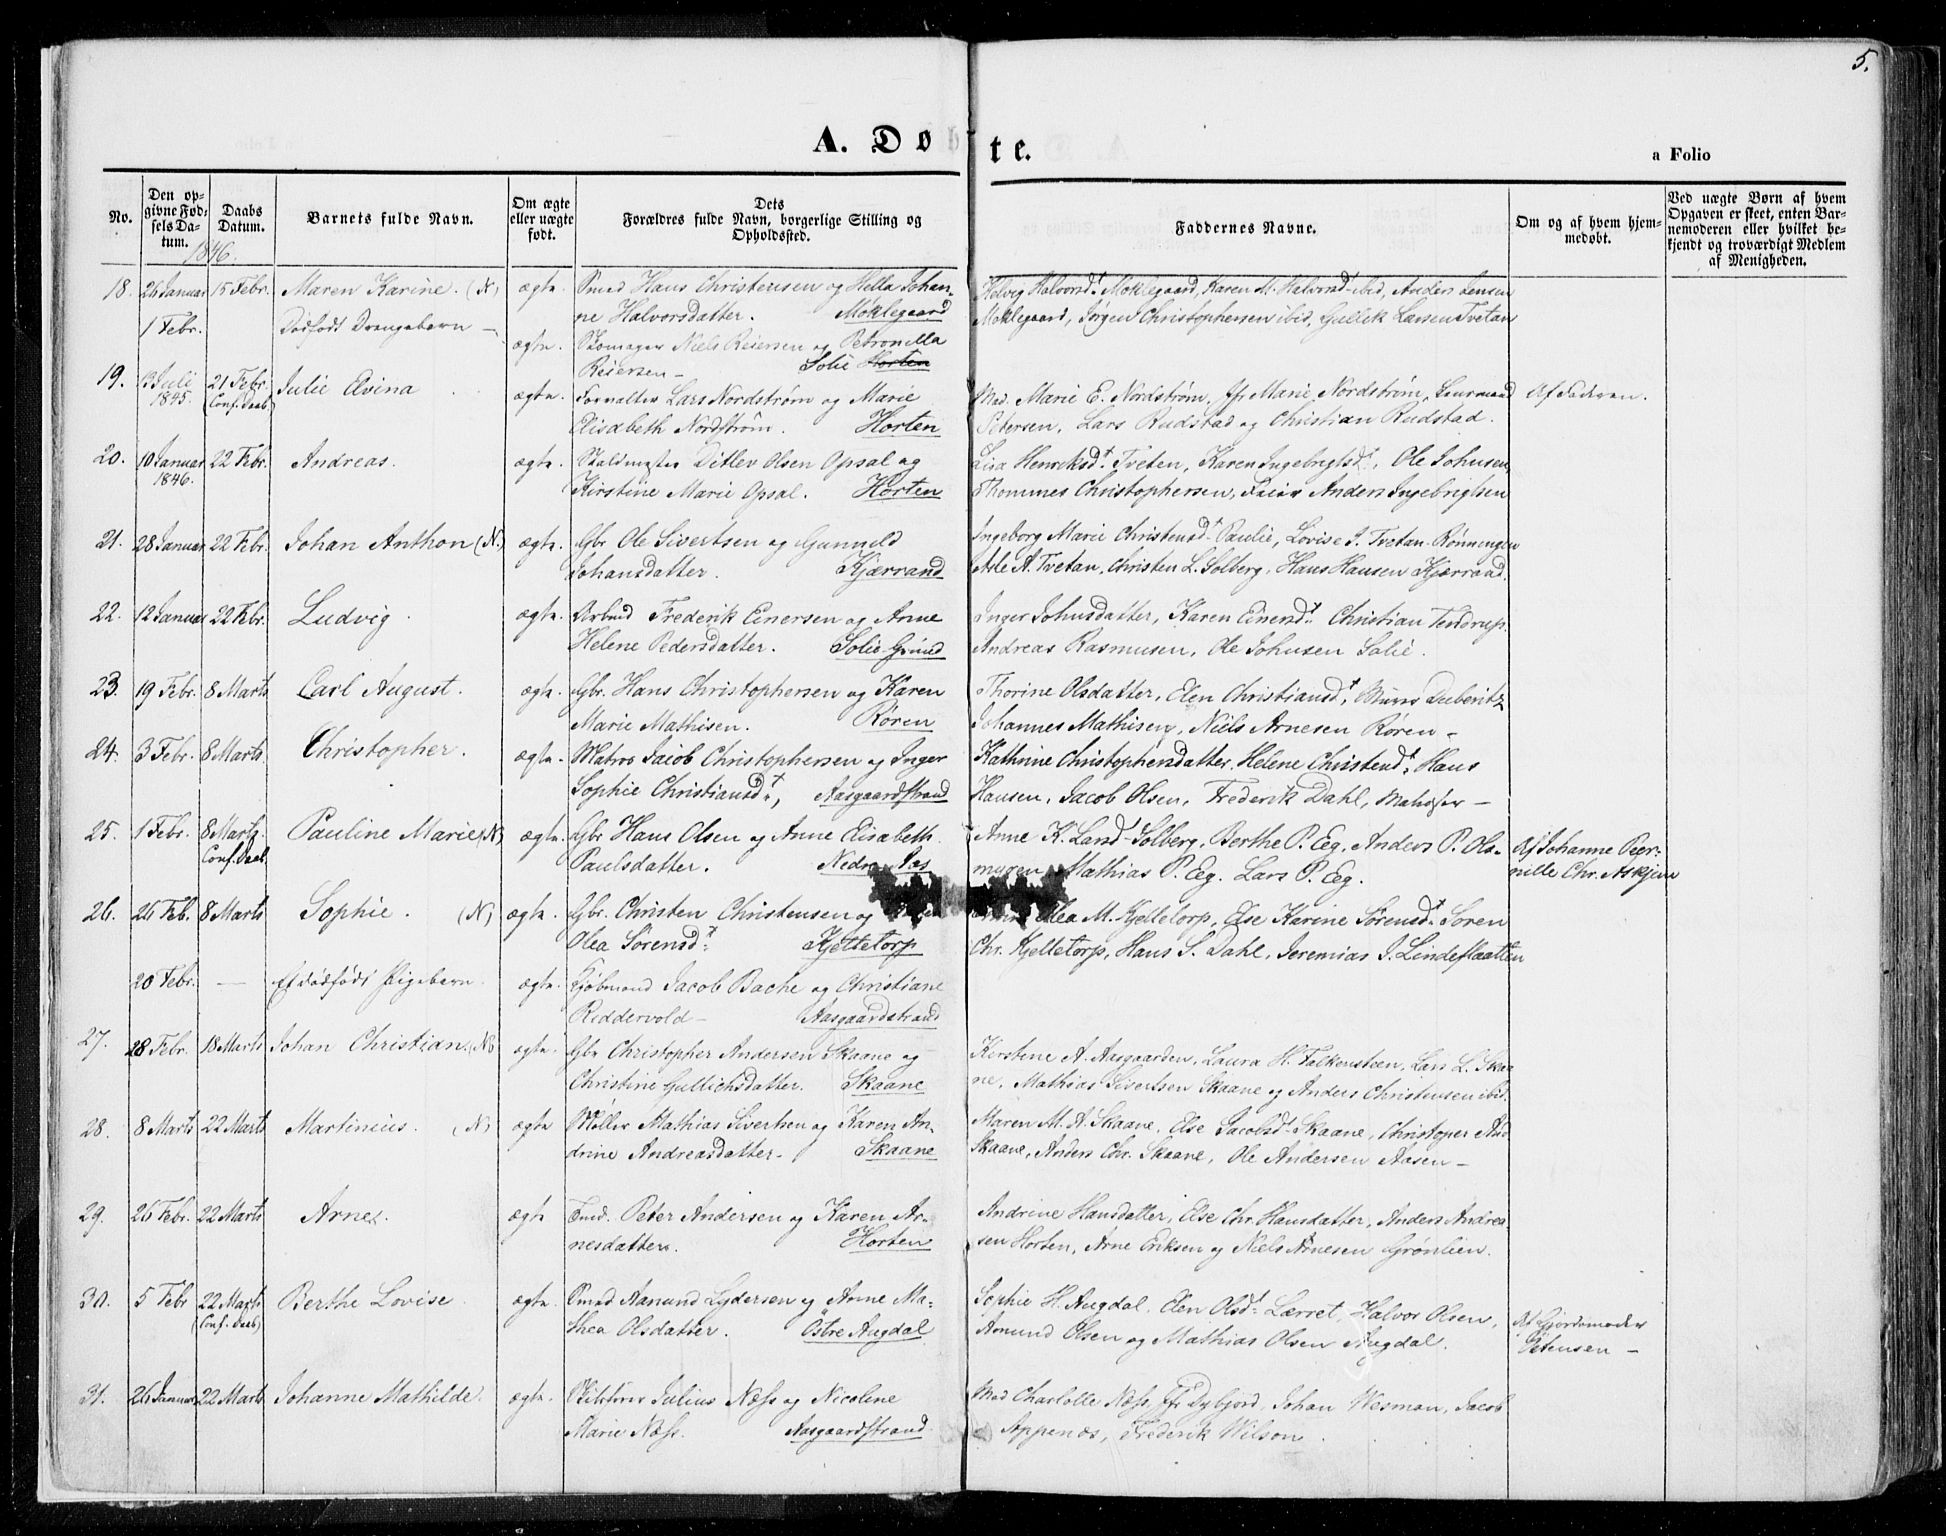 5.
A. Døbte.
a Folio
No.
Den opgivne Fødsels Datum.
Daabs Datum.
Barnets fulde Navn.
Om ægte eller uægte født.
Dets Forældres fulde Navn, borgerlige Stilling og Opholdssted.
Faddernes Navne.
Om og af hvem hjemmedøbt.
Ved uægte Børn af hvem Opgaven er skeet, enten Barnemoderen eller hvilket bekjendt og troværdigt Medlem af Menigheden.
1846.
18. 26 Januar 15 Febr. Maren Karine. (N) ægte. Smed Hans Christensen og Hella Johan- Helvig Halvorsdt Moklegaard, Karen M. Halvorsdt ibid, Anders Jensen
ne Halvorsdatter. Moklegaard Moklegaard, Jørgen Christophersen ibid, Gullik Larsen Tvetan
1 Febr. Dødfødt Drengebarn - ægte. Skomager Niels Reiersen og Petronella
Reiersen - Solie Horten
19. 13 Juli 1845. 21 Febr. (Conf. Daab) Julie Elvina ægte. Forvalter Lars Nordstrøm og Marie Mad. Marie E. Nordstrøm, Jfr Marie Nordstrøm, Af Faderen.
Elisabeth Nordstrøm. Horten Petersen, Lars Rudstad og Christian Rudstad.
20. 10 Januar 1846. 22 Febr. Andreas. ægte. Ditlev Olsen Opsal og Lisa Henriksdt. Tveten, Karen Ingebrigtsdt., Ole Johnsen
Kirstine Marie Opsal. Horten Thommes Christophersen, Anders Ingebrigtsen
21. 28 Januar 22 Febr. Johan Anthon (N.) ægte. Gbr. Ole Sivertsen og Gunneld Ingeborg Marie Christensdt Paulie, Lovise J. Tvetan-Rønningen
Johansdatter. Kjærrand Atle A. Tvetan, Christen L. Solberg, Hans Hansen Kjærrand.
22. 12 Januar 22 Febr. Ludvig. ægte. Arbmd Frederik Einersen og Anne Inger Johnsdatter, Karen Einersdt. Christian Tendrup.
Helene Pedersdatter. Solie-Grund Andreas Rasmusen, Ole Johnsen Solie.
23. 19 Febr. 8 Marts Carl August. ægte. Gbr. Hans Christophersen og Karen Thorine Olsdatter, Elen Christiansdt,
Marie Mathisen. Røren Johannes Mathisen, Niels Arnesen Røren -
24. 3 Febr. 8 Marts Christopher. ægte. Matros Jacob Christophersen og Inger Kathrine Christophersdatter, Helene Christensdt. Hans
Sophie Christiansdt., Aasgaardstrand Hansen, Jacob Olsen, Frederik Dahl, Matroser -
25. 1 Febr. 8 Marts. Conf. Daab. Pauline Marie (N) ægte. Gbr Hans Olsen og Anne Elisabeth Anne K. Larsd Solberg, Berthe P. Eeg, Anders P. Ols- Af Johanne Peer-
Paulsdatter. Nedre Aas myren Mathias P. Eeg. Lars P. Eeg. nille Chr. Askjem
26. 26 Feb. 8 Marts Sophie. (N) ægte. Gbr. Christen Christensen og Olea M. Kjeltetorp, Else Karine Sørensdt. Soren
Olea Sørensdt. Kjeltetorp Chr. Kjeltetorp, Hans S. Dahl, Jeremias J. Lindeflaatten
20 Febr. — Et dødfødt Pigebarn. ægte. Kjøbmand Jacob Bache og Christiane
Reddervold - Aasgaardstrand
27. 28 Febr. 18 Marts Johan Christian. (N) ægte. Gbr Christopher Andersen Skaane og Kirstene A. Aasgaarden, Laura H. Falkensteen, Lars L. Skaa
Christine Gullichsdatter. Skaane ne, Mathias Sivertsen Skaane og Anders Christensen ibid.
28. 8 Marts 22 Marts Martinius. (N) ægte Møller Mathias Sivertsen og Karen An- Maren M. A. Skaane, Else Jacobsdt Skaane, Christoper And
drine Andreasdatter - Skaane Skaane, Anders Chr. Skaane, Ole Andersen Aasen -
29. 26 Febr. 22 Marts Arne. ægte Peter Andersen og Karen Ar- Andrine Hansdatter, Else Chr. Hansdatter, Anders Andrea
nesdatter. Horten sen Horten, Arne Eriksen og Niels Arnesen Grønlien.
30. 5 Febr 22 Marts (Conf. Daab) Berthe Lovise. ægte. Smed Aanund Lydersen og Anne Ma- Sophie H. Augdal, Elen Olsdt. Lærret, Halvor Olsen, Af Gjordemoder
thea Olsdatter. Østre Augdal Amund Olsen og Mathias Olsen Augdal. Petersen -
31. 26 Januar 22 Marts Johanne Mathilde. ægte. Skibsfører Julius Næss og Nicoline Mad Charlotte Næss, Jfr Dybjord, Johan Wesman, Jacob
Marie Næss. Aasgaardstrand Appenæs, Frederik Wilson.